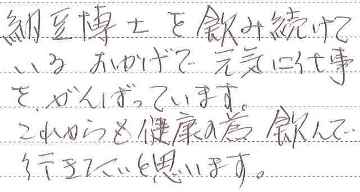 納豆博士を飲み続けて
いるおかげで元気に仕事
を、がんばっています。
これからも健康の為飲んで
行きたいと思います。